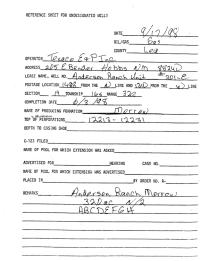 REFERENCE SHEET FOR UNDESIGNATED WELLS
DATE 9/17/98
OIL/GAS Gas
COUNTY Lea
OPERATOR Texaco E&P Inc
ADDRESS 205 E Bender Hobbs NM 88240
LEASE NAME, WELL NO. Anderson Ranch Unit #
FOOTAGE LOCATION FROM THE N LINE AND FROM THE LINE
SECTION TOWNSHIP 16S RANGE 32E
COMPLETION DATE 6/2/98
NAME OF PRODUCING FORMATION Morrow
TOP OF PERFORATIONS 12213 - 12231
DEPTH TO CASING SHOE
C-123 FILED
NAME OF POOL FOR WHICH EXTENSION WAS ASKED
ADVERTISED FOR HEARING CASE NO.
NAME OF POOL FOR WHICH EXTENSION WAS ADVERTISED
PLACED IN BY ORDER NO. R-
REMARKS Anderson Ranch Morrow
320ac N/2
ABCDEFGH